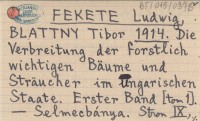 BF/045/0396
FEKETE Ludwig,
BLATTNY Tibor 1914. Die
Verbreitung der forstlich
wichtigen Bäume und
Sträucher im Ungarischen
Staate. Erster Band [tom 1].
— Selmecbánya. Stron IX,